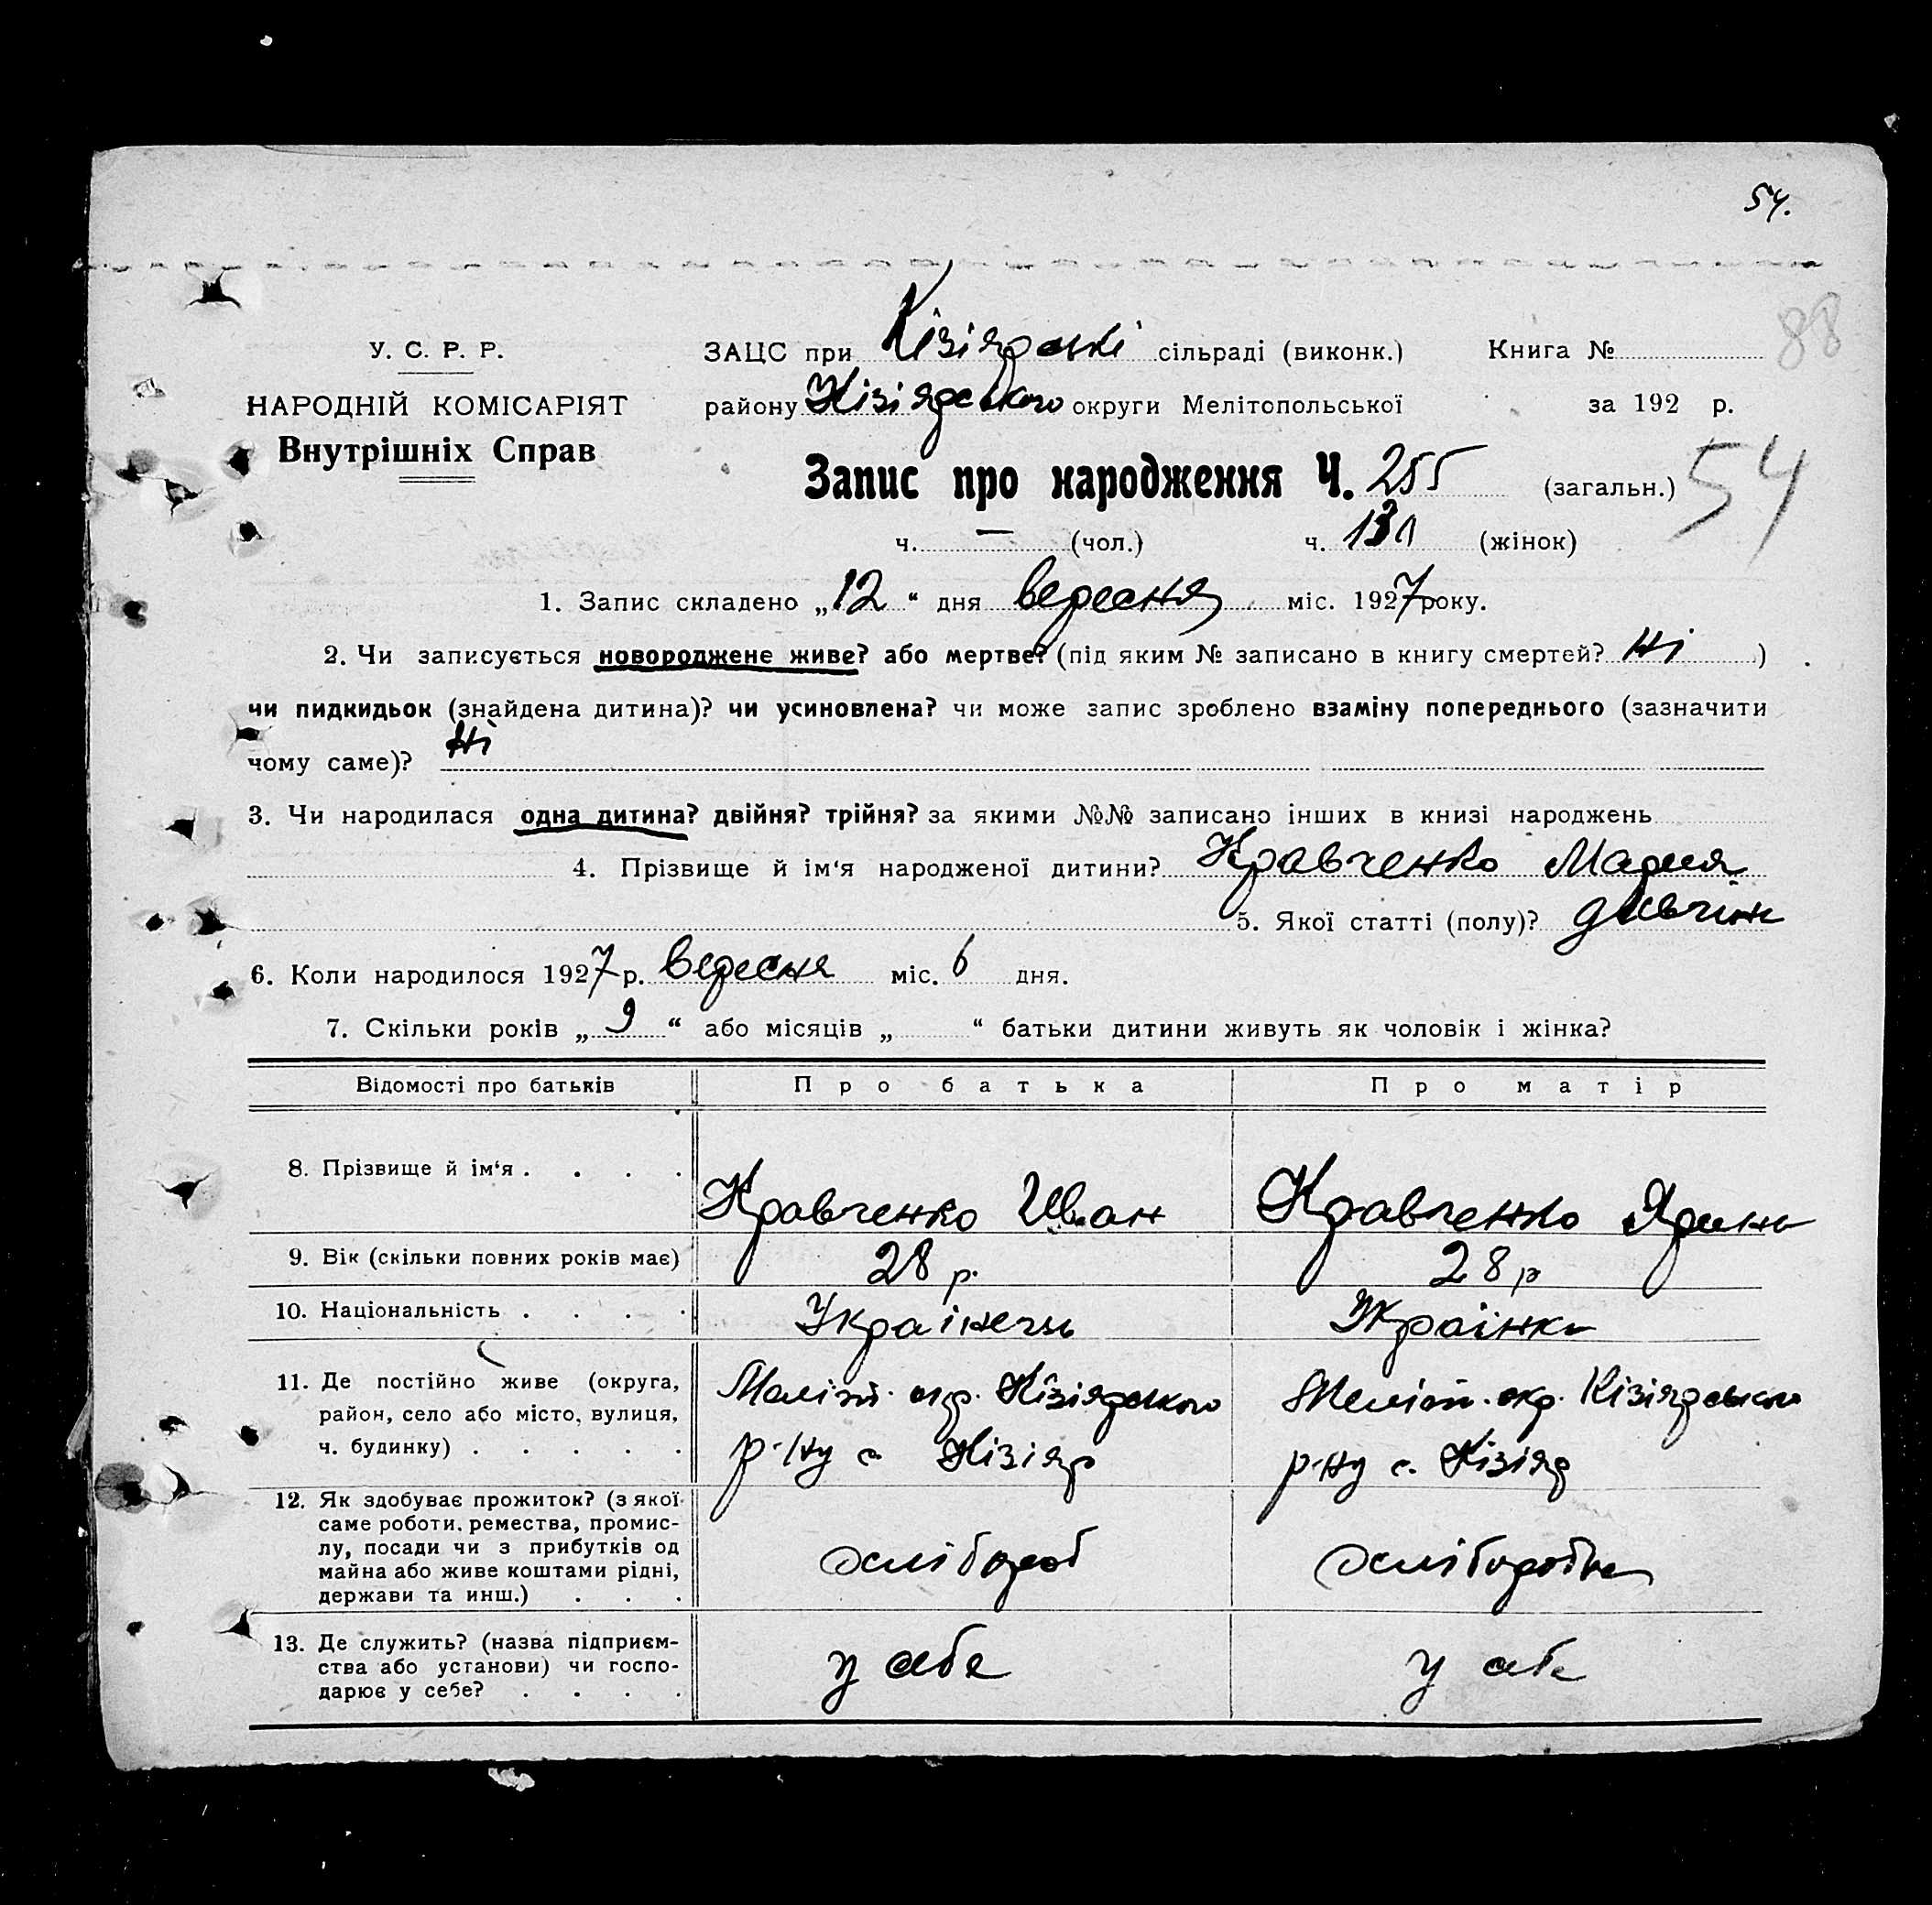 54.
88
У. С. Р. Р.
ЗАЦС при Кізіярські сільраді (виконк.) Книга №
НАРОДНІЙ КОМІСАРІЯТ
району Кізіярського округи Мелітопольської за 192 р.
Внутрішніх Справ
Запис про народження Ч. 255 (загальн.) 54
ч. — (чол.) ч. (жінок)
1. Запис складено „12“ дня вересня міс. 1927 року.
2. Чи записується новороджене живе? або мертве? (під яким № записано в книгу смертей? Ні)
чи пидкидьок (знайдена дитина)? чи усиновлена? чи може запис зроблено взаміну попереднього (зазначити
чому саме)? Ні
3. Чи народилася одна дитина? двійня? трійня? за якими №№ записано інших в книзі народжень
4. Прізвище й ім‘я народженої дитини? Кравченко Мария
5. Якої статті (полу)?
6. Коли народилося 1927 р. вересня міс. 6 дня.
7. Скільки років „9“ або місяців „ “ батьки дитини живуть як чоловік і жінка?
Відомості про батьків Про батька Про матір
8. Прізвище й ім‘я . . . . Кравченко Иван Кравченко Ярина
9. Вік (скільки повних років має) 28 р. 28 р
10. Національність . . . . Українець Українка
11. Де постійно живе (округа, Меліт. окр. Кізіярського Меліт. окр. Кізіярського
район, село або місто, вулиця,
ч. будинку) . . . . . р-ну с. Кізіяр р-ну с. Кізіяр
12. Як здобуває прожиток? (з якої
саме роботи, ремества, промис-
лу, посади чи з прибутків од хлібороб хліборобка
майна або живе коштами рідні,
держави та инш.) . . .
13. Де служить? (назва підприєм-
ства або установи) чи госпо- у себе у себе
дарює у себе? . . . .